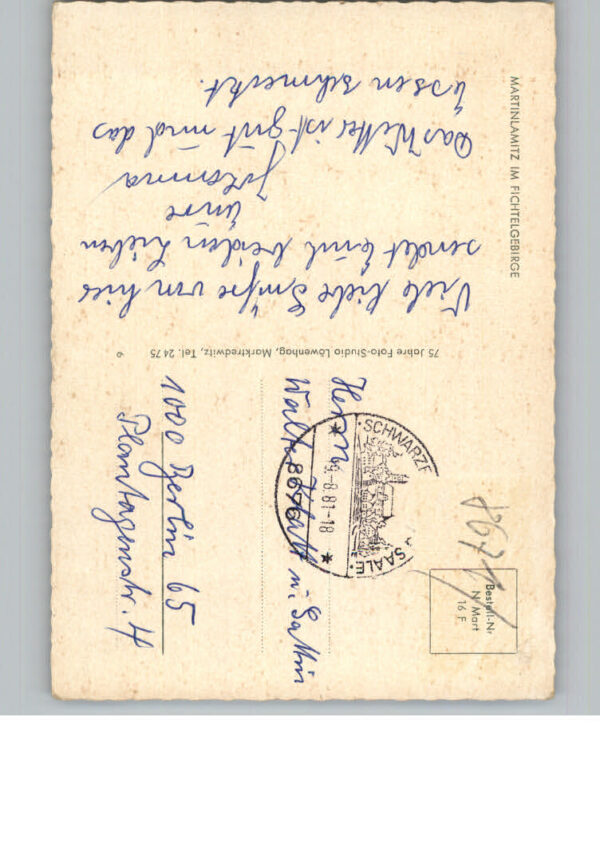 MARTINLAMITZ IM FICHTELGEBIRGE
Viele liebe Grüße von hier
sendet Euch beiden Lieben
Eure
Johanna
Das Wetter ist gut und das
Essen schmeckt.
75 Jahre Foto-Studio Löwenhag, Marktredwitz, Tel. 24 75
6
Bestell-Nr
N Mart
16 F
867
SCHWARZE
SAALE
-8.81-18
8676
Herrn
Walter u. Gattin
1000 Berlin 65
Plantagenstr. 4